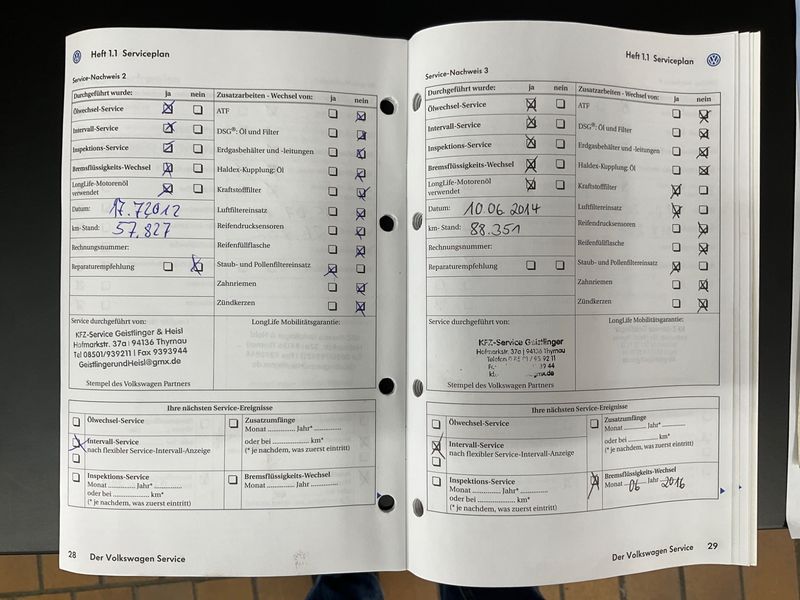 Heft 1.1 Serviceplan
Service-Nachweis 2
Durchgeführt wurde: ja nein
Ölwechsel-Service
Intervall-Service
Inspektions-Service
Bremsflüssigkeits-Wechsel
LongLife-Motorenöl
verwendet
Datum: 17.7.2012
km- Stand: 57.827
Rechnungsnummer:
Reparaturempfehlung
Zusatzarbeiten - Wechsel von: ja nein
ATF
DSG®: Öl und Filter
Erdgasbehälter und -leitungen
Haldex-Kupplung: Öl
Kraftstofffilter
Luftfiltereinsatz
Reifendrucksensoren
Reifenfüllflasche
Staub- und Pollenfiltereinsatz
Zahnriemen
Zündkerzen
Service durchgeführt von:
KFZ-Service Geistlinger & Heisl
Hofmarkstr. 37a | 94136 Thyrnau
Tel 08501/939211 | Fax 9393944
GeistlingerundHeisl@gmx.de
Stempel des Volkswagen Partners
LongLife Mobilitätsgarantie:
Ihre nächsten Service-Ereignisse
Ölwechsel-Service
Intervall-Service
nach flexibler Service-Intervall-Anzeige
Inspektions-Service
Monat ............ Jahr* ............
oder bei ............ km*
(* je nachdem, was zuerst eintritt)
Zusatzumfänge
Monat ............ Jahr* ............
oder bei ............ km*
(* je nachdem, was zuerst eintritt)
Bremsflüssigkeits-Wechsel
Monat ............ Jahr ............
28 Der Volkswagen Service
Heft 1.1 Serviceplan
Service-Nachweis 3
Durchgeführt wurde: ja nein
Ölwechsel-Service
Intervall-Service
Inspektions-Service
Bremsflüssigkeits-Wechsel
LongLife-Motorenöl
verwendet
Datum: 10.06.2014
km- Stand: 88.351
Rechnungsnummer:
Reparaturempfehlung
Zusatzarbeiten - Wechsel von: ja nein
ATF
DSG®: Öl und Filter
Erdgasbehälter und -leitungen
Haldex-Kupplung: Öl
Kraftstofffilter
Luftfiltereinsatz
Reifendrucksensoren
Reifenfüllflasche
Staub- und Pollenfiltereinsatz
Zahnriemen
Zündkerzen
Service durchgeführt von:
KFZ-Service Geistlinger
Hofmarkstr. 37a | 94136 Thyrnau
Telefon
Stempel des Volkswagen Partners
LongLife Mobilitätsgarantie:
Ihre nächsten Service-Ereignisse
Ölwechsel-Service
Intervall-Service
nach flexibler Service-Intervall-Anzeige
Inspektions-Service
Monat ............ Jahr* ............
oder bei ............ km*
(* je nachdem, was zuerst eintritt)
Zusatzumfänge
Monat ............ Jahr* ............
oder bei ............ km*
(* je nachdem, was zuerst eintritt)
Bremsflüssigkeits-Wechsel
Monat 06 Jahr 2016
Der Volkswagen Service 29